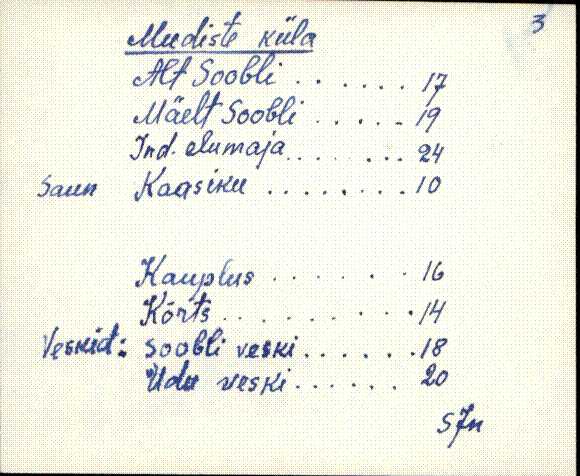 3
Mudiste küla
Alt Soobli ...... 17
Mäelt Soobli ..... 19
Ind. elumaja ...... 24
Saun Kaasiku ........ 10
Kauplus ...... 16
Kõrts ......... 14
Veskid: Soobli veski ...... 18
Udu veski ...... 20